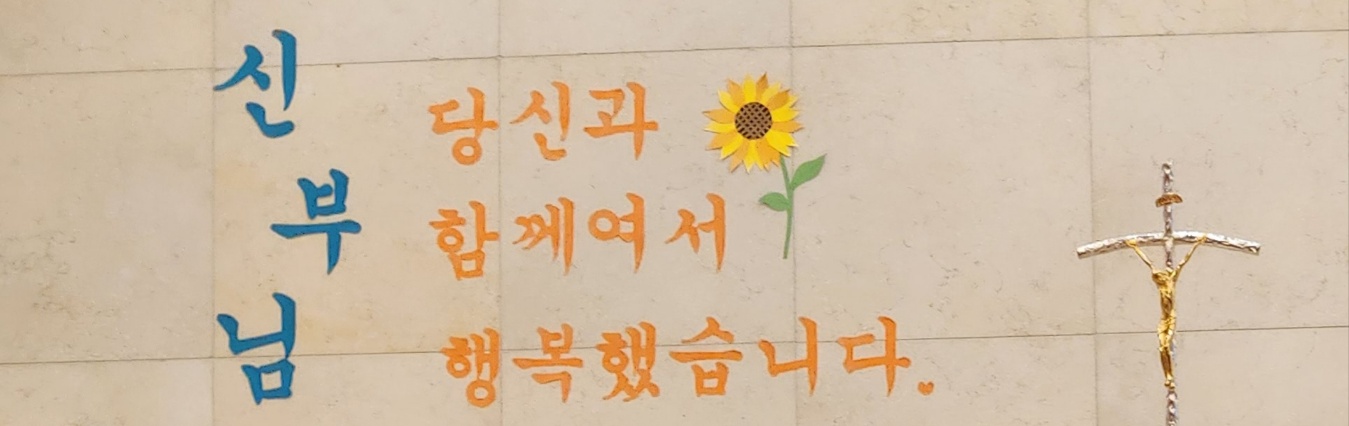 신부님
당신과
함께여서
행복했습니다.